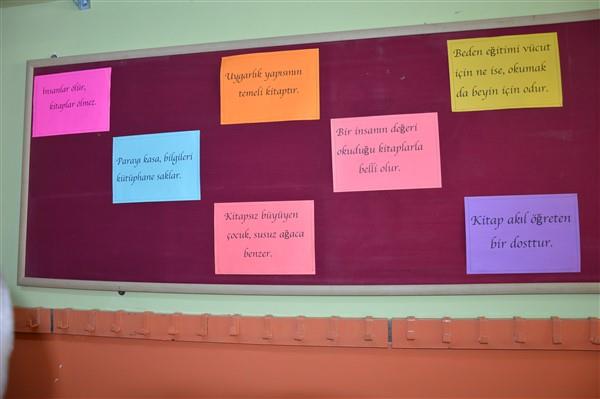 İnsanlar ölür,
kitaplar ölmez.
Uygarlık yapısının
temeli kitaptır.
Beden eğitimi vücut
için ne ise, okumak
da beyin için odur.
Parayı kasa, bilgileri
kütüphane saklar.
Bir insanın değeri
okuduğu kitaplarla
belli olur.
Kitapsız büyüyen
çocuk, susuz ağaca
benzer.
Kitap akıl öğreten
bir dosttur.